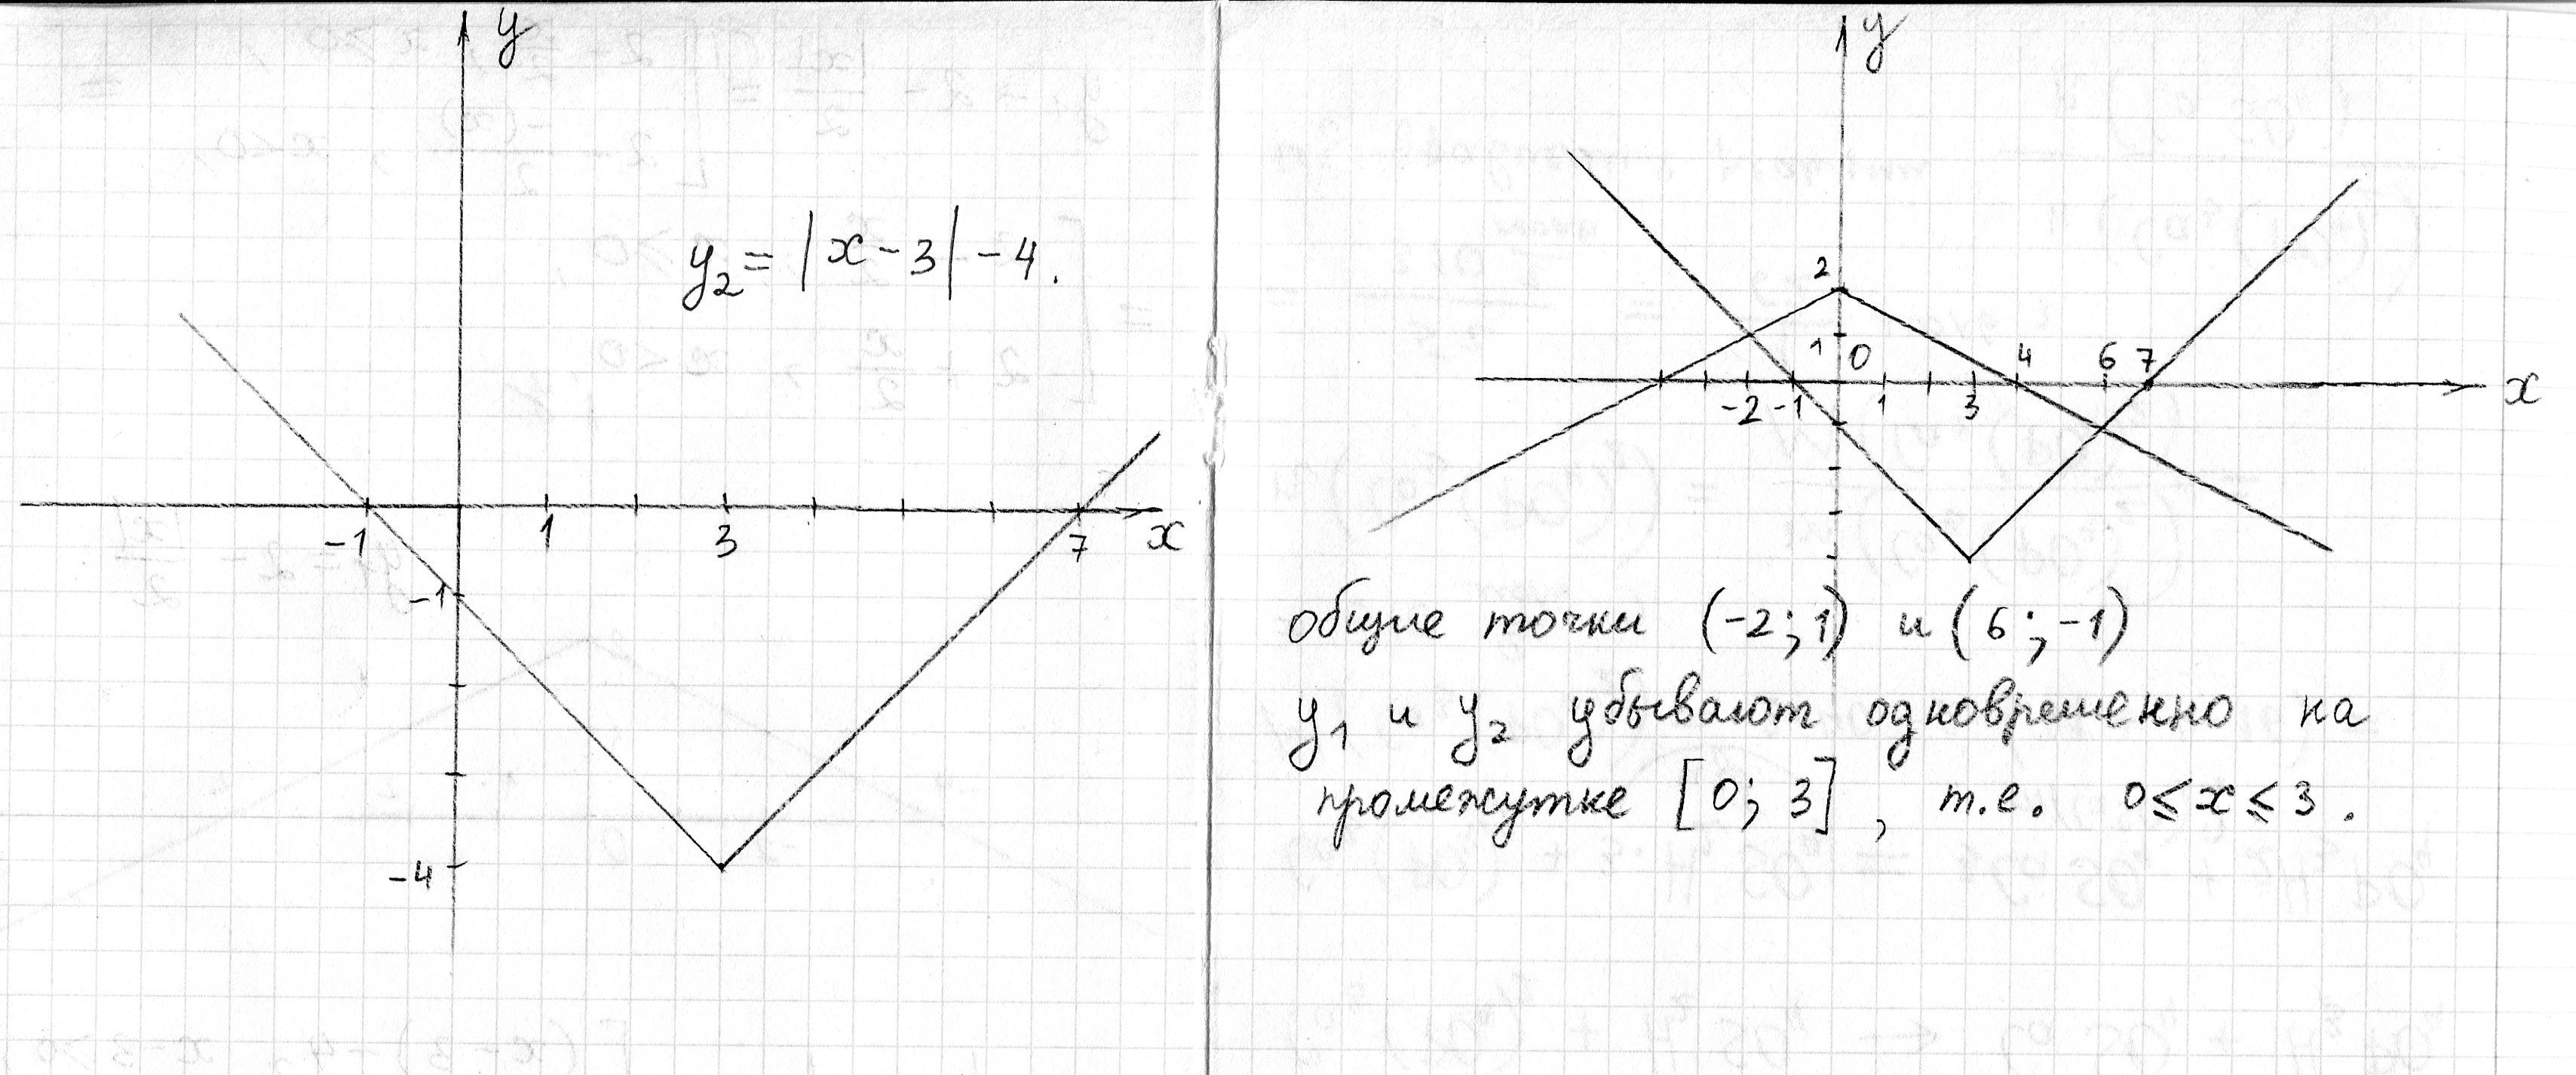 y
y₂ = |x - 3| - 4.
-1 1 3 7 x
-1
-4
y
2
1 0 4 6 7
-2 -1 1 3 x
общие точки (-2; 1) и (6; -1)
y₁ и y₂ убывают одновременно на
промежутке [0; 3], т.е. 0 ≤ x ≤ 3.